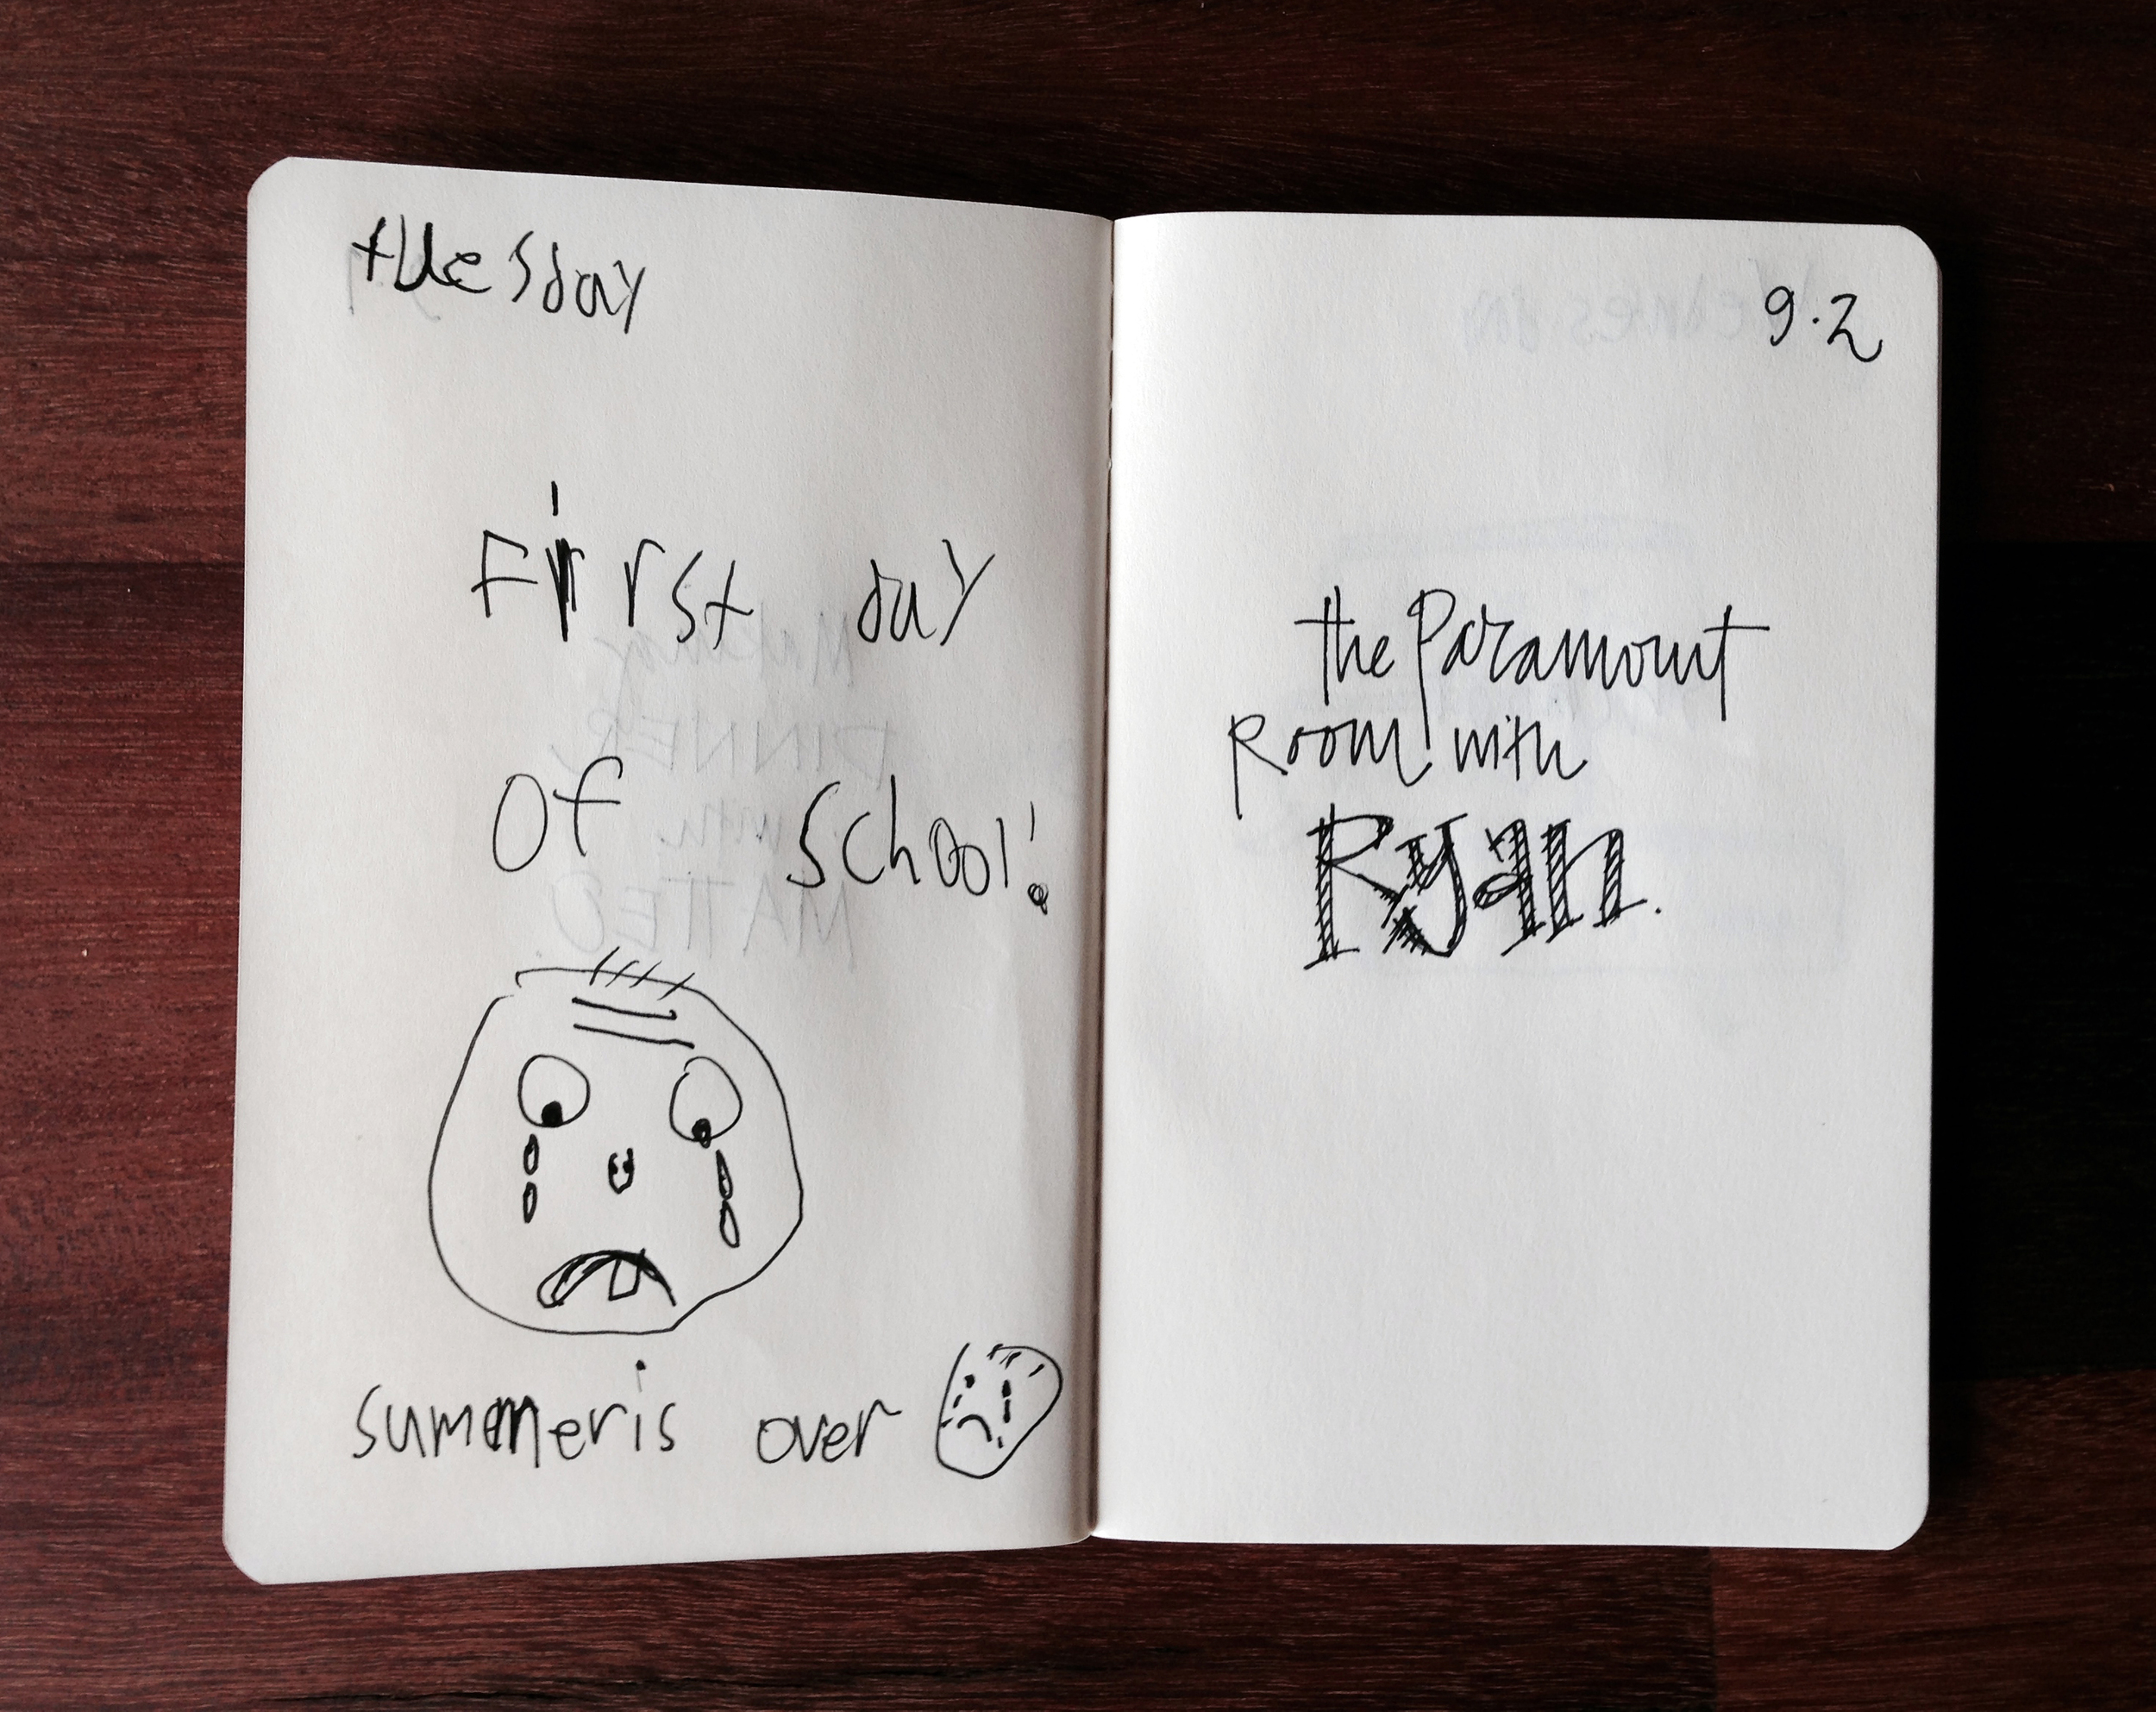 tuesday
First day
of school!
summer is over
9.2
the Paramount
Room with
Ryan.